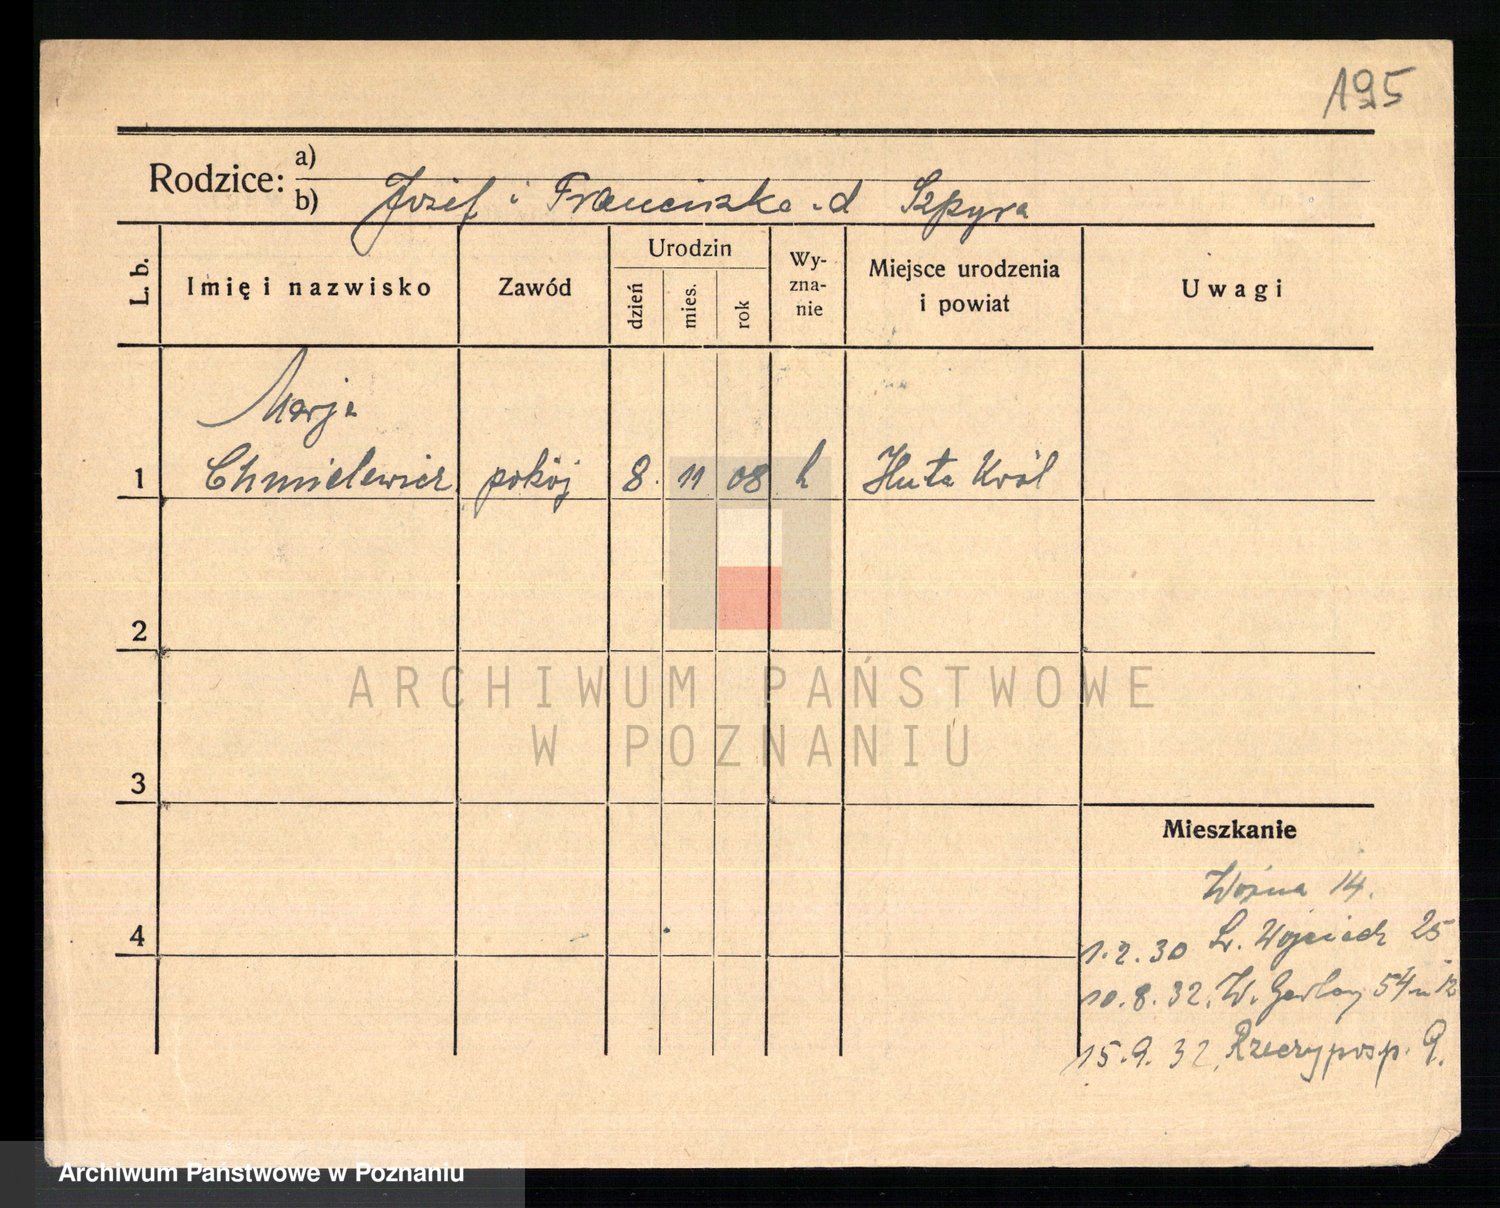 195
Rodzice: a)
b) Józef i Franciszka z d Szpyra
L. b. Imię i nazwisko Zawód Urodzin dzień mies. rok Wy-zna-nie Miejsce urodzenia i powiat Uwagi
Marja
1 Chmielewicz pokój 8. 11 08 k Huta Król
2
ARCHIWUM PAŃSTWOWE
W POZNANIU
3
Mieszkanie
Woźna 14.
4
1.2.30 Św. Wojciech 25
10.8.32. W. Garbary 54 m 12
15.9.32. Rzeczyposp. 9.
Archiwum Państwowe w Poznaniu